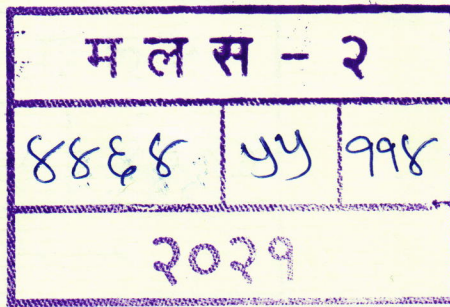 म ल स - २
४४६४ ५५ ११४
२०२१